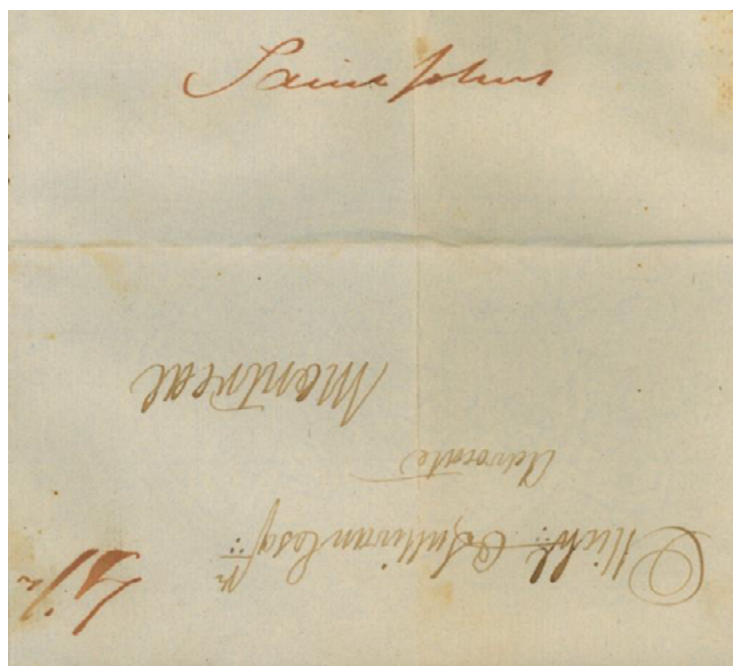 Saint Johns
Mich:l O Sullivan Esq:r
Advocate
Montreal
4½